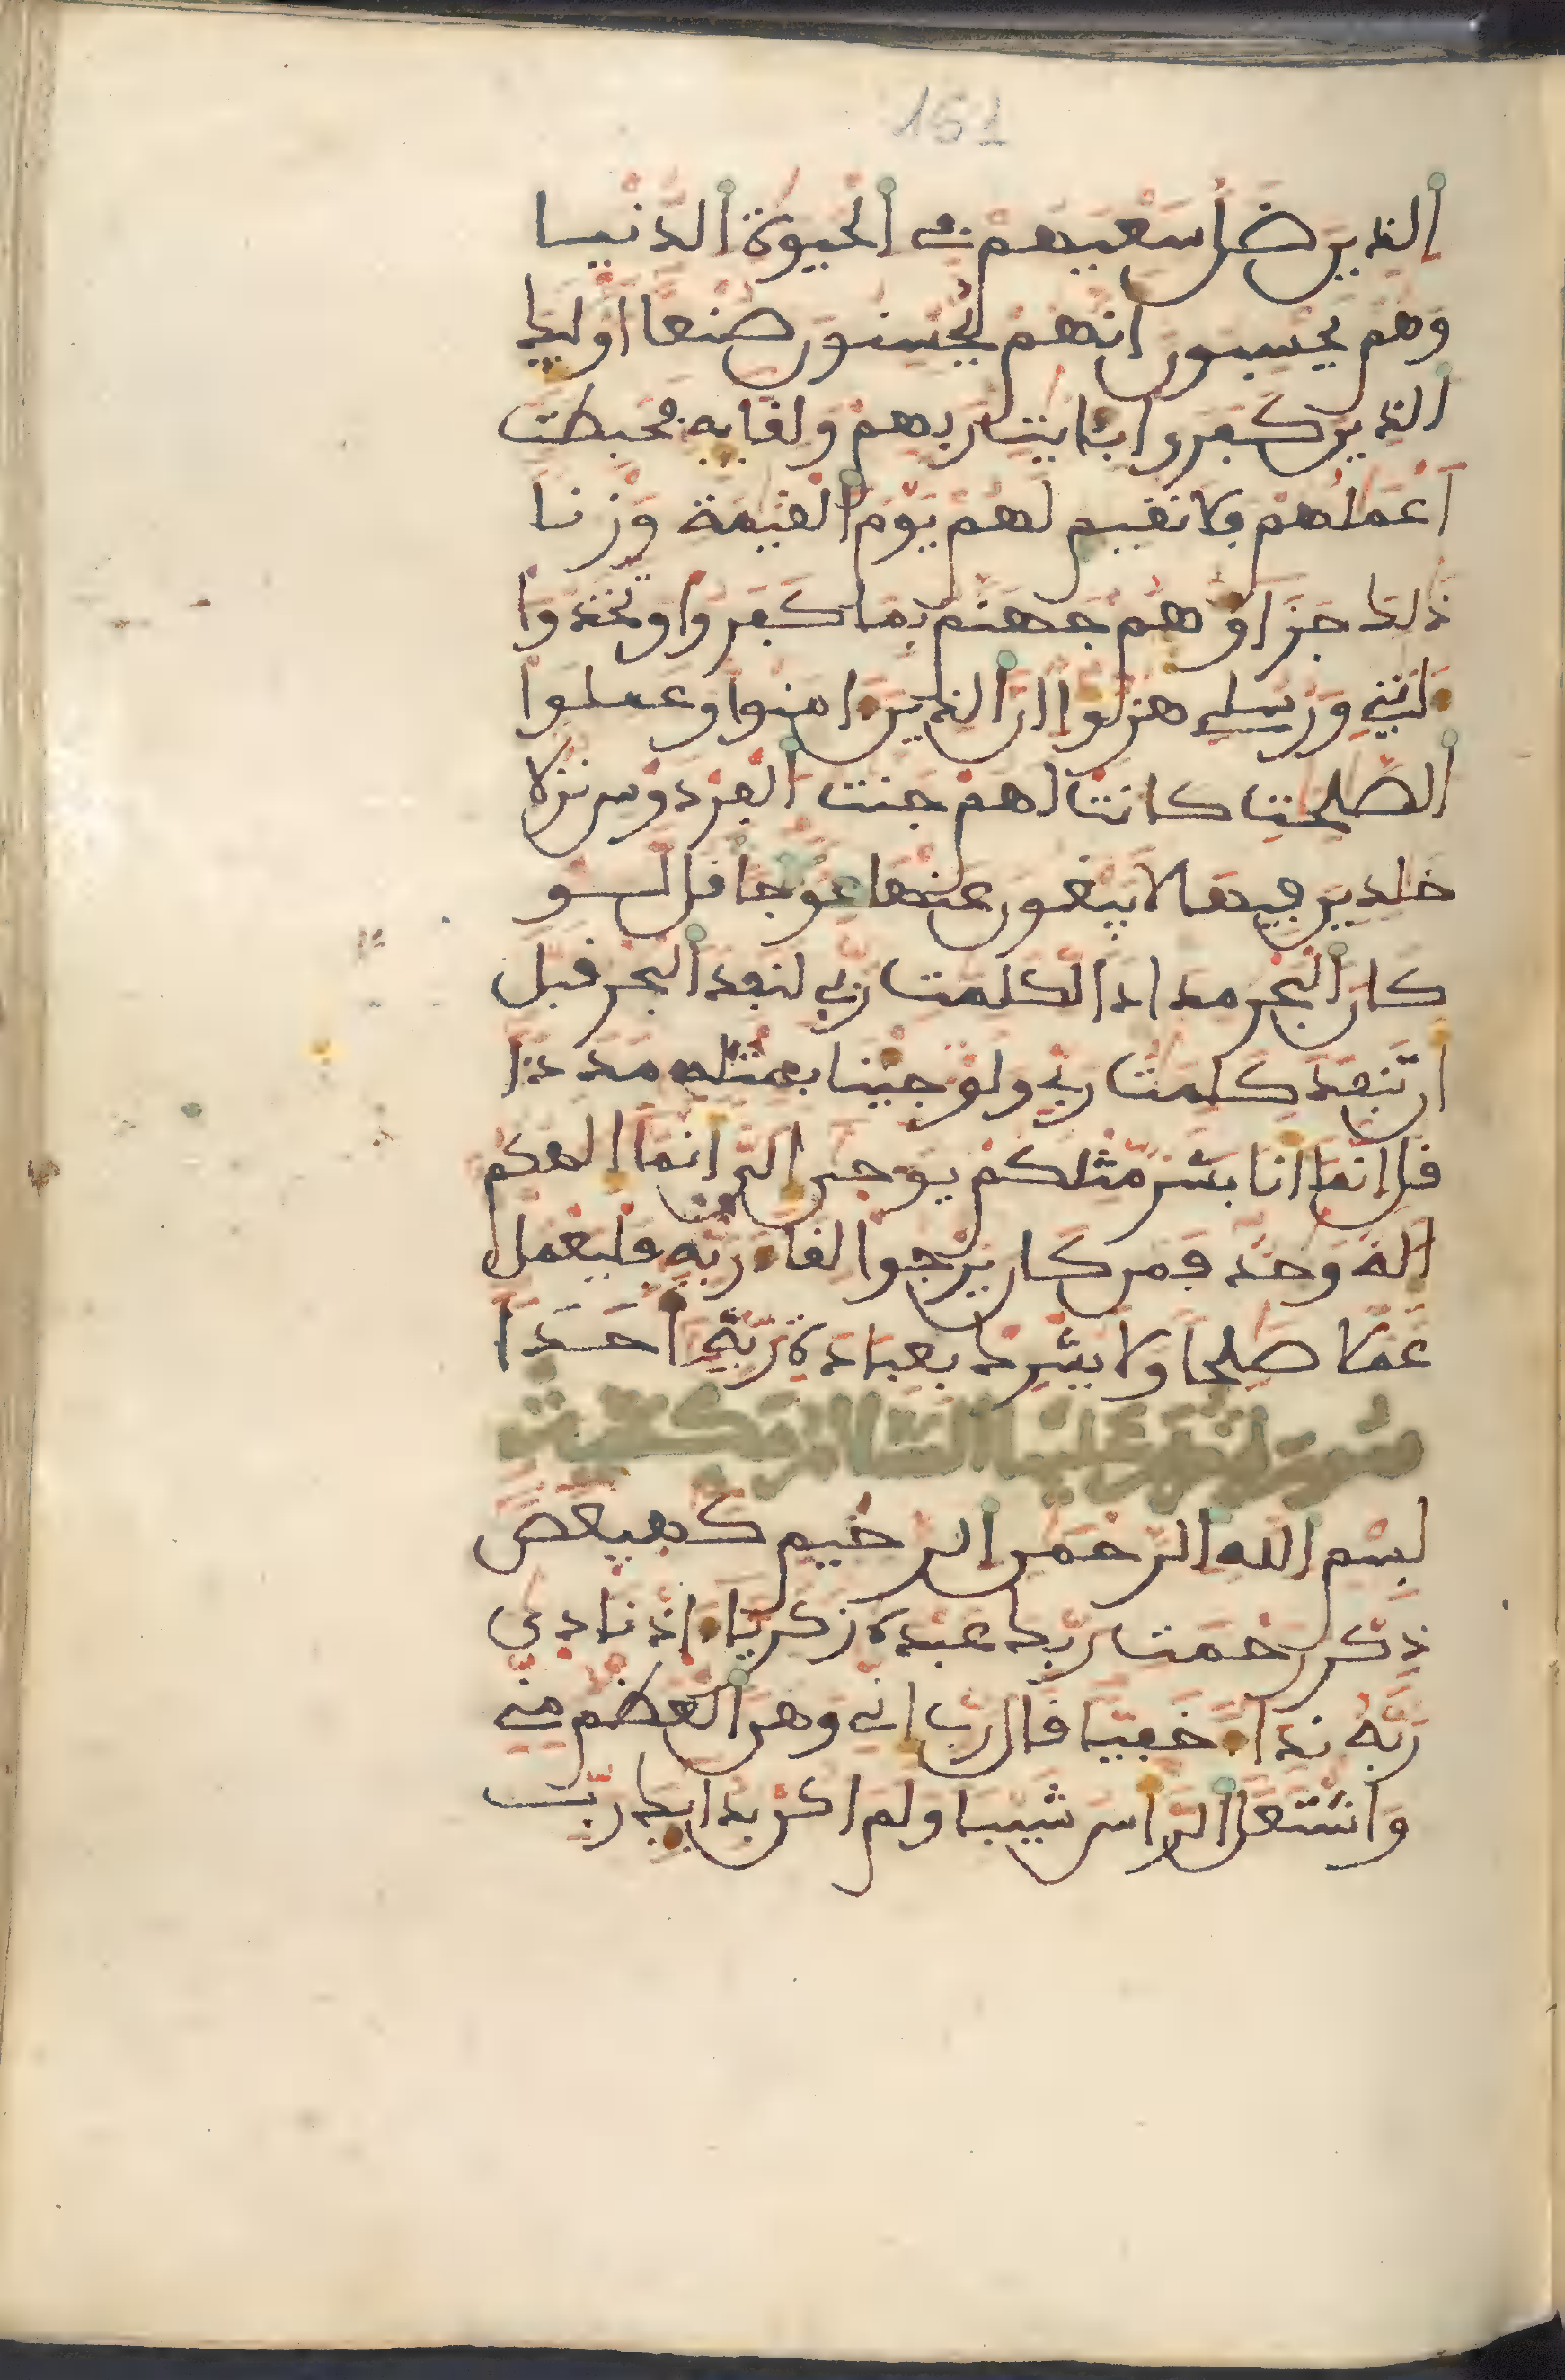 161
الذين ضل سعيهم في الحيوة الدنيا
وهم يحسبون انهم يحسنون صنعا اوليك
الذين كفروا بايت ربهم ولقايه فحبطت
اعملهم فلا نقيم لهم يوم القيمة وزنا
ذلك جزاوهم جهنم بما كفروا واتخذوا
ايتي ورسلي هزوا ان الذين امنوا وعملوا
الصلحت كانت لهم جنت الفردوس نزلا
خلدين فيها لا يبغون عنها عوجا قل لو
كان البحر مدادا لكلمت ربي لنفد البحر قبل
ان تنفد كلمت ربي ولو جينا بمثله مددا
قل انما انا بشر مثلكم يوحى الي انما الهكم
اله وحد فمن كان يرجوا لقاء ربه فليعمل
عملا صلحا ولا يشرك بعبادة ربه احدا
بسم الله الرحمن الرحيم كهيعص
ذكر رحمت ربك عبده زكرياء اذ نادى
ربه نداء خفيا قال رب اني وهن العظم مني
واشتعل الراس شيبا ولم اكن بدعايك رب